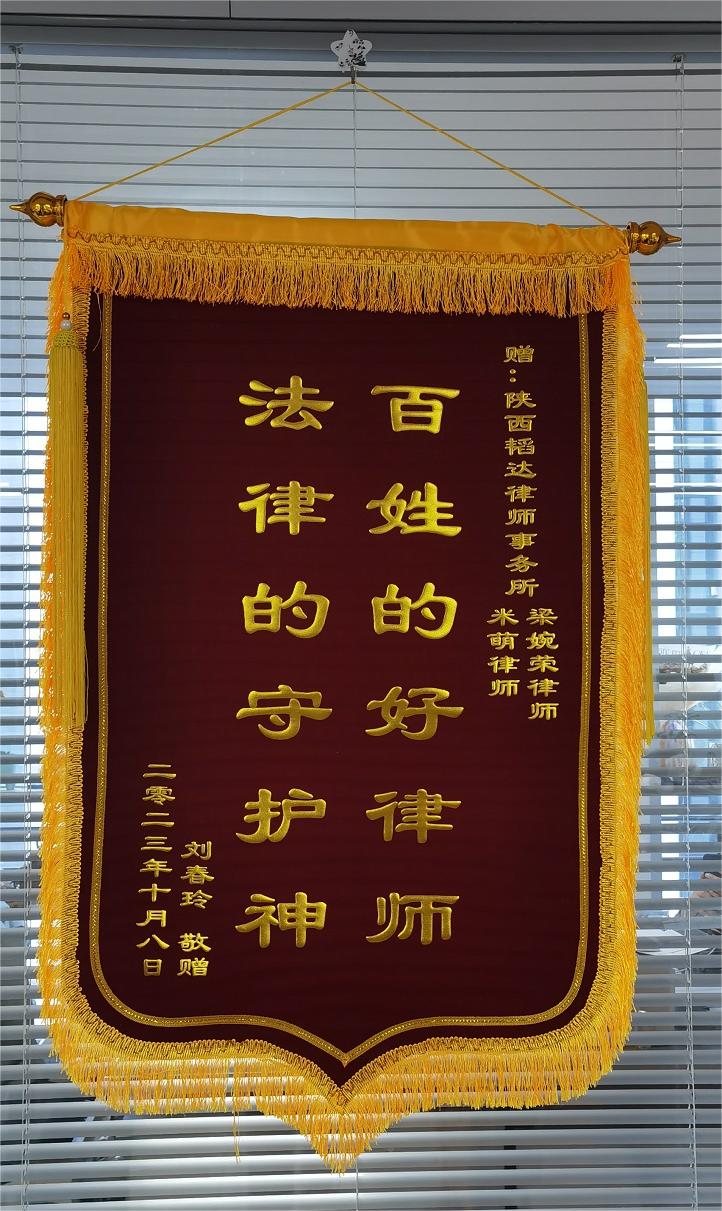 赠：陕西韬达律师事务所
梁婉荣律师
米萌律师
百姓的好律师
法律的守护神
刘春玲 敬赠
二零二三年十月八日